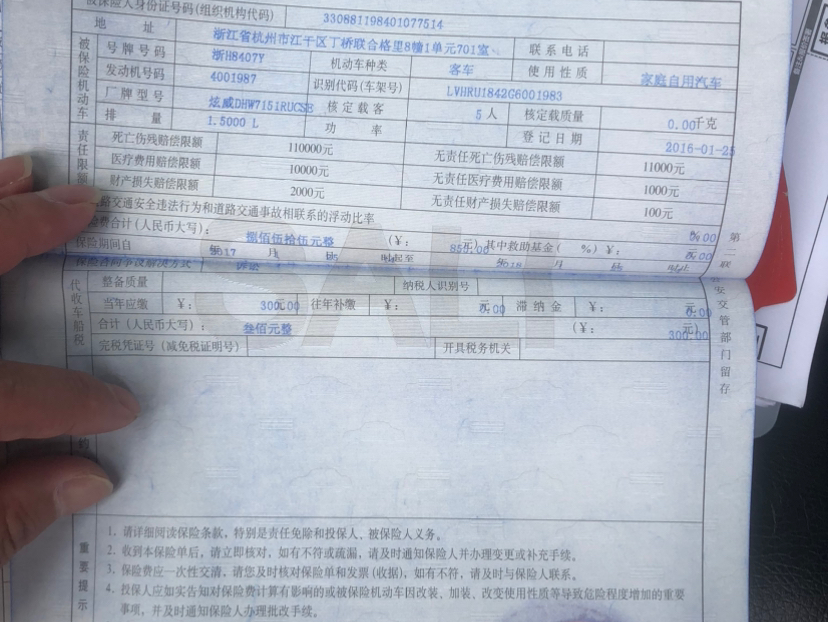 被保险人身份证号码(组织机构代码) 330881198401077514
地 址 浙江省杭州市江干区丁桥联合格里8幢1单元701室 联系电话
号牌号码 浙H8407Y 机动车种类 客车 使用性质 家庭自用汽车
发动机号码 4001987 识别代码(车架号) LVHRU1842G6001983
厂牌型号 炫威DHW7151RUCSE 核定载客 5 人 核定载质量 0.00千克
排 量 1.5000 L 功 率 登记日期 2016-01-25
被保险机动车
死亡伤残赔偿限额 110000元 无责任死亡伤残赔偿限额 11000元
医疗费用赔偿限额 10000元 无责任医疗费用赔偿限额 1000元
财产损失赔偿限额 2000元 无责任财产损失赔偿限额 100元
责任限额
路交通安全违法行为和道路交通事故相联系的浮动比率 %
险费合计(人民币大写): 捌佰伍拾伍元整 (¥: 元) 其中救助基金( %) ¥:
保险期间自
保险合同争议解决方式 诉讼
代收车船税
整备质量 纳税人识别号
当年应缴 ¥: 300.00元 往年补缴 ¥: 0.00元 滞纳金 ¥: 0.00元
合计(人民币大写): 叁佰元整 (¥: 300.00元)
完税凭证号(减免税证明号) 开具税务机关
第二联
交管部门留存
SALI
重要提示
1. 请详细阅读保险条款,特别是责任免除和投保人、被保险人义务。
2. 收到本保险单后,请立即核对,如有不符或疏漏,请及时通知保险人并办理变更或补充手续。
3. 保险费应一次性交清,请您及时核对保险单和发票(收据),如有不符,请及时与保险人联系。
4. 投保人应如实告知对保险费计算有影响的或被保险机动车因改装、加装、改变使用性质等导致危险程度增加的重要
事项,并及时通知保险人办理批改手续。